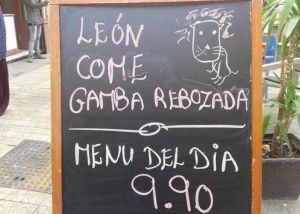 LEÓN
COME
GAMBA REBOZADA
MENU DEL DiA
9.90